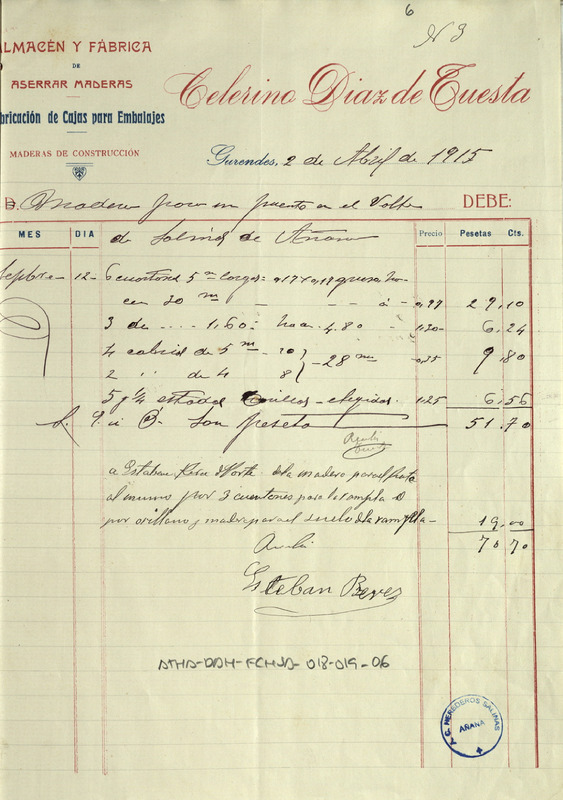 6
Nº 3
ALMACÉN Y FÁBRICA
DE
ASERRAR MADERAS
Fabricación de Cajas para Embalajes
MADERAS DE CONSTRUCCIÓN
Celerino Diaz de Tuesta
Gurendes, 2 de Abril de 1915
D. Madera para un puente en el
DEBE:
MES DIA Precio Pesetas Cts.
de Salinas de Añana
Sepbre 12 6 cuartones 5 m largos
cen 30 m - - - á - 0,97 29,10
3 de .... 1,60 = hacen 4.80 1,30 6,24
4 cabrios de 5 m - 20 } - 28 m 0,35 9,80
2 " de 4 8
5 y ¼ elegidas 1,25 6,56
Son pesetas 51,70
a Esteban
al mismo por 3 cuartones para la rampla
por orillano y madera para el suelo de la rampla - 19,00
70 70
Esteban Perez
ATHA-DAH-FCHSA-018-019-06
A. C. HEREDEROS SALINAS
AÑANA